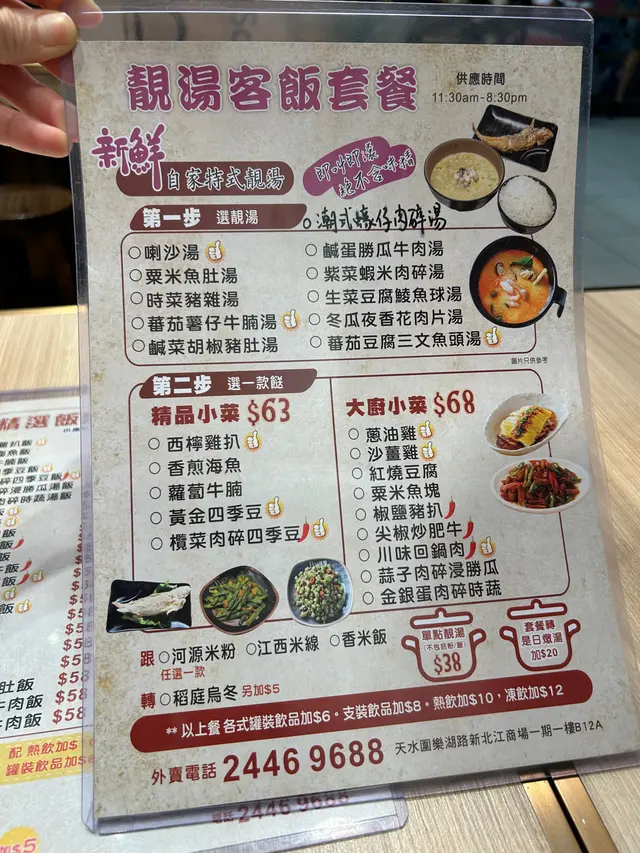 靚湯客飯套餐
供應時間
11:30am-8:30pm
新鮮
自家特式靚湯
即叫即滾
絕不含味精
第一步 選靚湯
○潮式蠔仔肉碎湯
○喇沙湯
○粟米魚肚湯
○時菜豬雜湯
○番茄薯仔牛腩湯
○鹹菜胡椒豬肚湯
○鹹蛋勝瓜牛肉湯
○紫菜蝦米肉碎湯
○生菜豆腐鯪魚球湯
○冬瓜夜香花肉片湯
○番茄豆腐三文魚頭湯
圖片只供參考
第二步 選一款餸
精品小菜 $63
○西檸雞扒
○香煎海魚
○蘿蔔牛腩
○黃金四季豆
○欖菜肉碎四季豆
大廚小菜 $68
○蔥油雞
○沙薑雞
○紅燒豆腐
○粟米魚塊
○椒鹽豬扒
○尖椒炒肥牛
○川味回鍋肉
○蒜子肉碎浸勝瓜
○金銀蛋肉碎時蔬
跟 ○河源米粉 ○江西米線 ○香米飯
任選一款
轉 ○稻庭烏冬 另加$5
單點靚湯
(不包括粉/飯)
$38
套餐轉
是日燉湯
加$20
** 以上餐 各式罐裝飲品加$6。支裝飲品加$8。熱飲加$10，凍飲加$12
外賣電話 2446 9688
天水圍樂湖路新北江商場一期一樓B12A
精選飯
肚飯 $58
牛肉飯 $58
牛肉飯 $58
配 熱飲加$
罐裝飲品加$
加$5